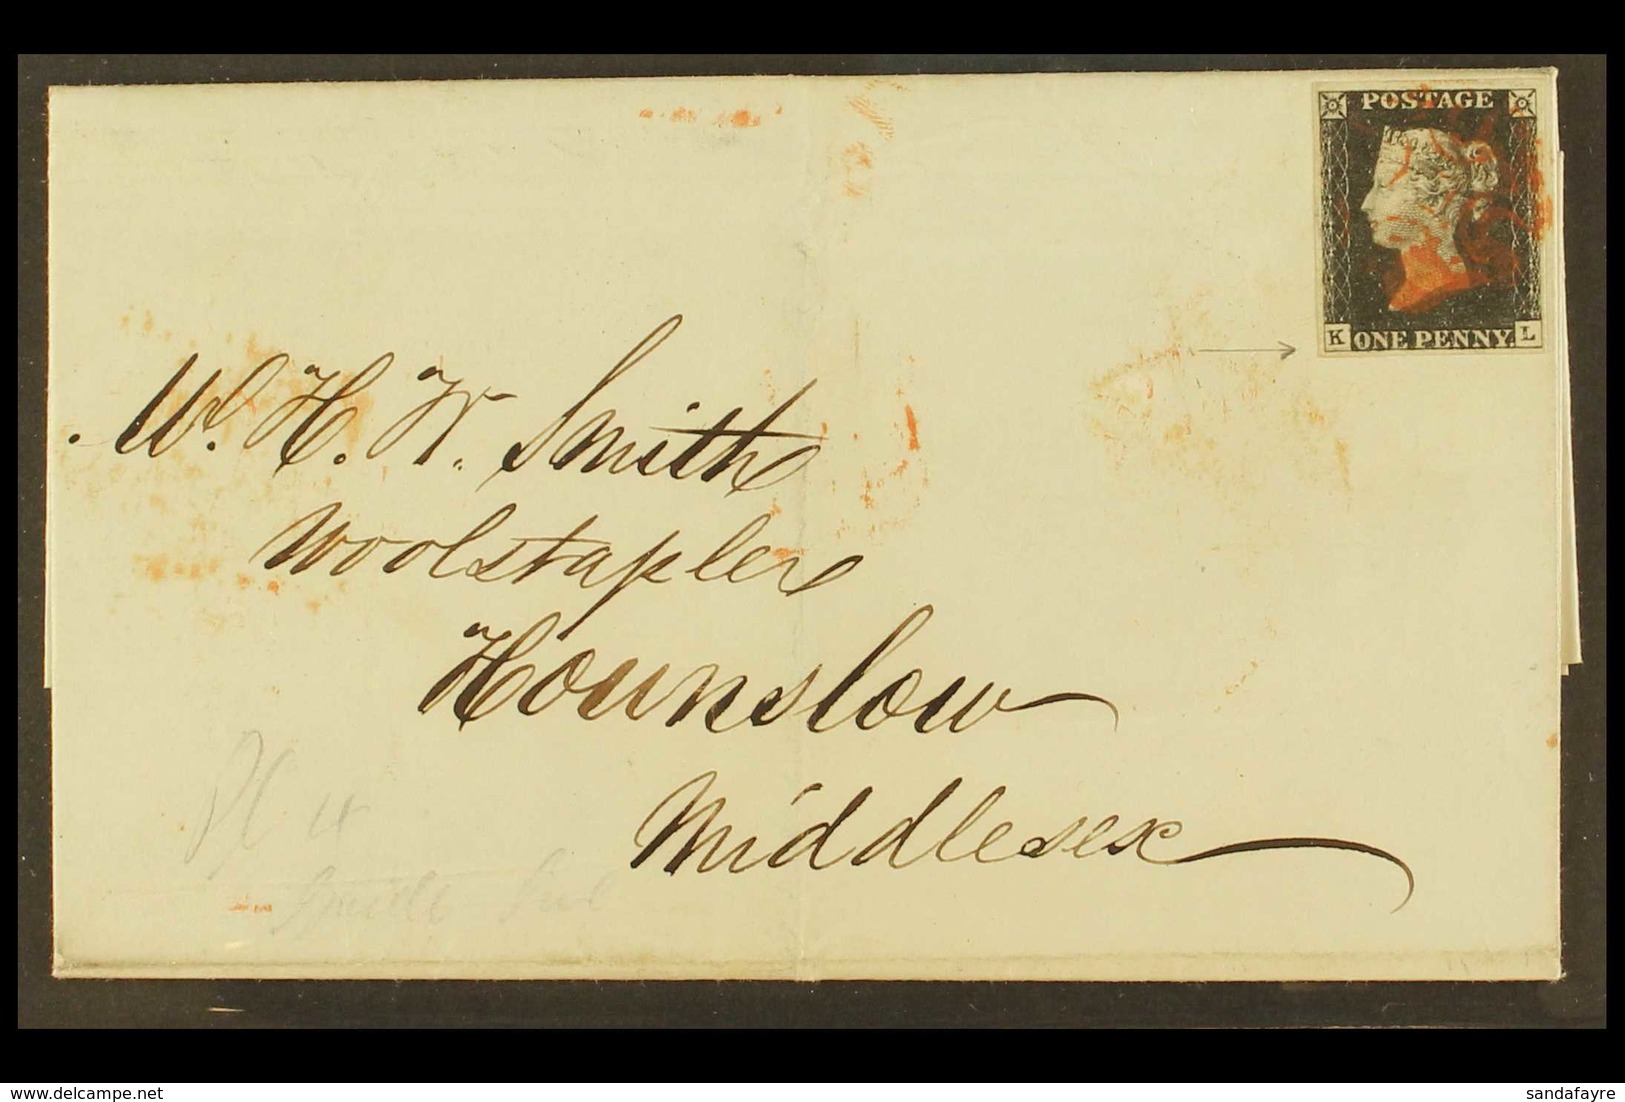 POSTAGE
K ONE PENNY. L
Mr. H. W. Smith
Woolstapler
Hounslow
Middlesex
Pl 4
sandafayre